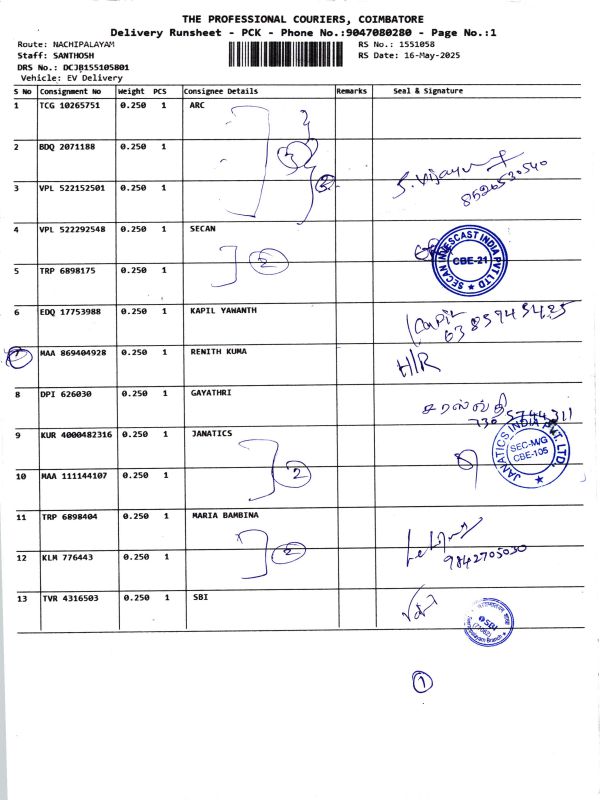 THE PROFESSIONAL COURIERS, COIMBATORE
Delivery Runsheet - PCK - Phone No.:9047080280 - Page No.:1
Route: NACHIPALAYAM RS No.: 1551058
Staff: SANTHOSH RS Date: 16-May-2025
DRS No.: DCJB155105801
Vehicle: EV Delivery
S No Consignment No Weight PCS Consignee Details Remarks Seal & Signature
1 TCG 10265751 0.250 1 ARC
2 BDQ 2071188 0.250 1
3
3 VPL 522152501 0.250 1
S. Vijayu
8526530540
4 VPL 522292548 0.250 1 SECAN
SECAN INVESCAST INDIA PVT LTD
CBE-21
2
5 TRP 6898175 0.250 1
6 EDQ 17753988 0.250 1 KAPIL YAWANTH
Kapil
6385945425
7 MAA 869404928 0.250 1 RENITH KUMA
H/R
8 DPI 626030 0.250 1 GAYATHRI
சரஸ்வதி
9 KUR 4000482316 0.250 1 JANATICS
JANATICS INDIA PVT. LTD.
SEC-M/G
CBE-105
10 MAA 111144107 0.250 1
2
11 TRP 6898404 0.250 1 MARIA BAMBINA
2
12 KLM 776443 0.250 1
9842705030
13 TVR 4316503 0.250 1 SBI
SBI
1